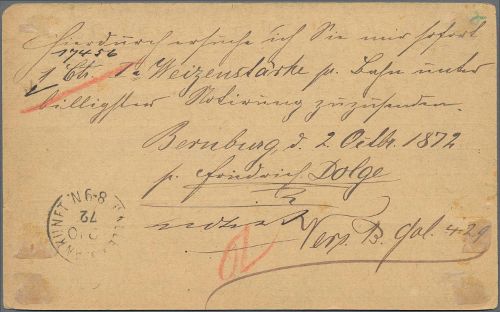 Hierdurch ersuche ich Sie mir sofort
17456
1 Ctr. Ia Weizenstärke p. Bahn unter
billigster Notirung zuzusenden.
Bernburg, d. 2. Octbr. 1872
p. Friedrich Dolge
Verz. B. fol. 429
ANKUNFT
72
8-9 N.